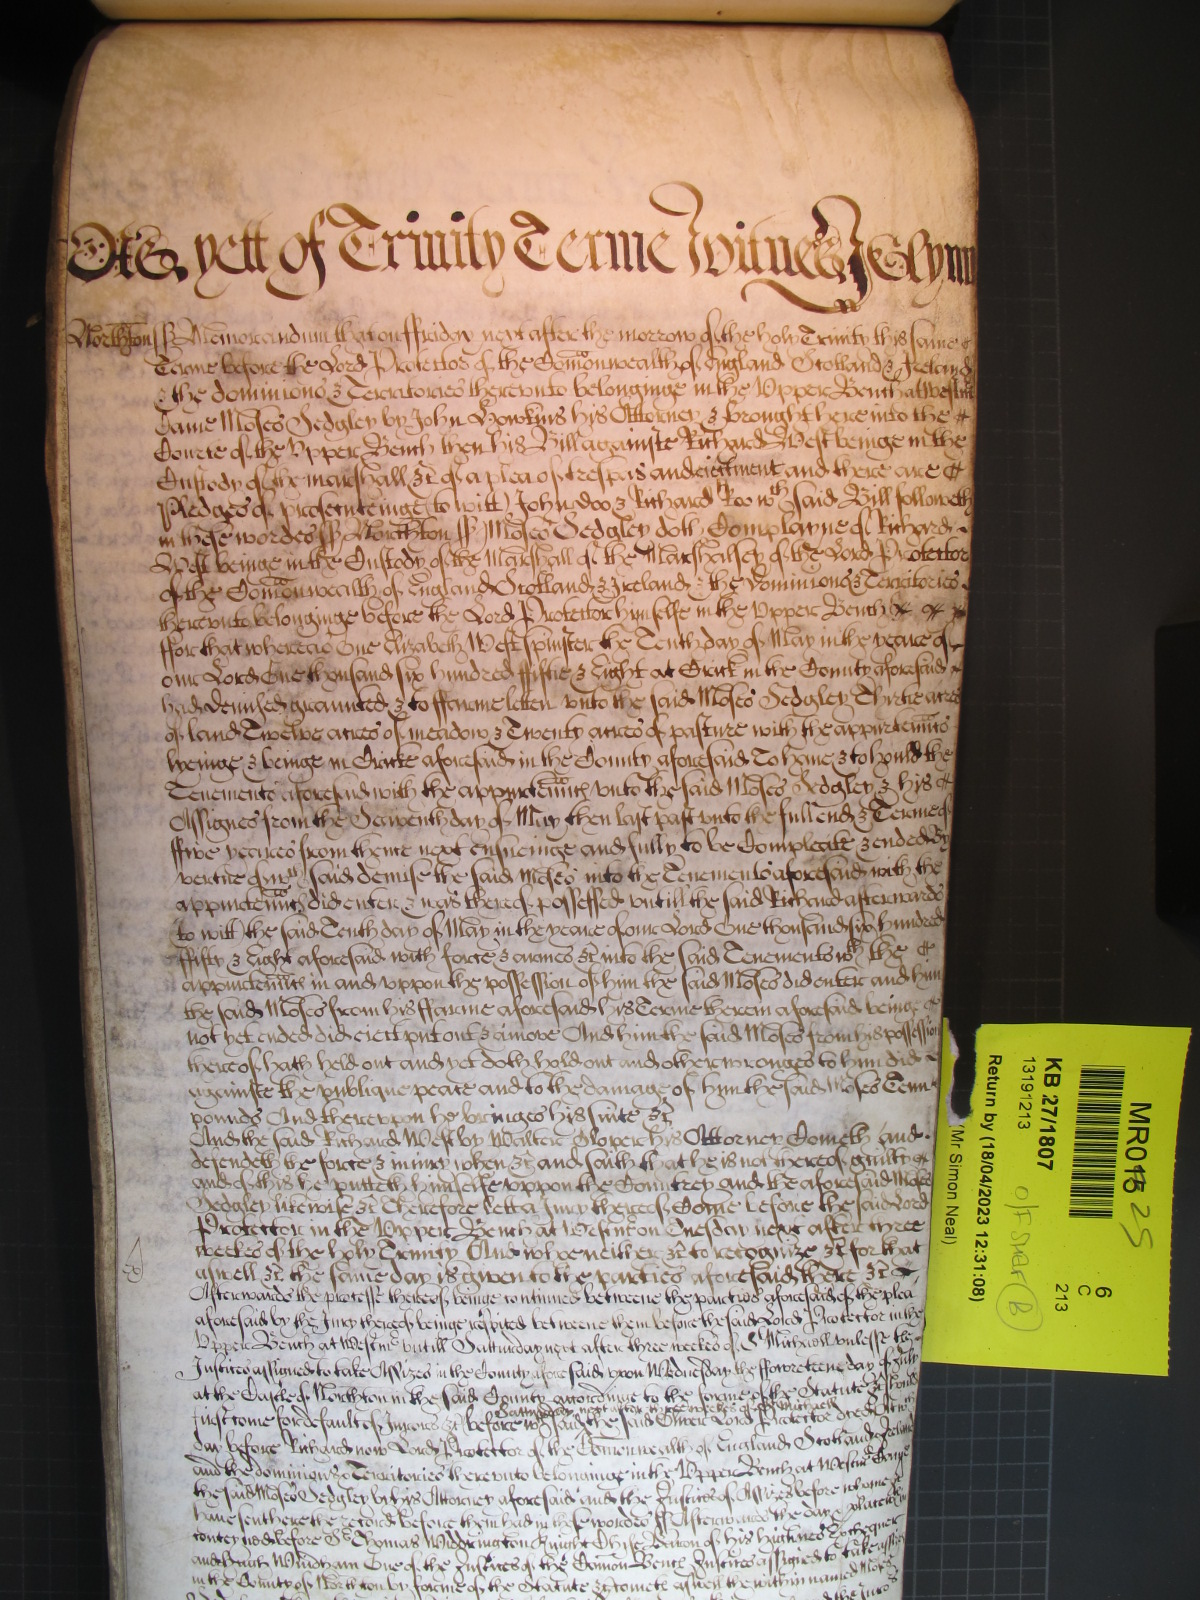 As yett of Trinity Terme Witnes J Glynn
Northton ss Memorandum that on ffriday next after the morrow of the holy Trinity this same
Terme before the Lord Protector of the Comonwealth of England Scotland & Ireland
& the dominions & Territories thereunto belonginge in the Upper Bench at Westm
Came Moses Sedgley by John Hawkins his Attorney & brought here into the
Courte of the Upper Bench then his Bill againste Richard West beinge in the
Custody of the marshall &c of a plea of trespas and eiectment and there are
Pledges of prosecuteinge to witt John doo & Richard Roo wch said Bill followeth
in these wordes ss Northton ss Moses Sedgley doth Complayne of Richard
West beinge in the Custody of the Marshall of the Marshalsey of the Lord Protector
of the Comonwealth of England Scotland & Ireland & the dominions & Territories
thereunto belonginge before the Lord Protector himselfe in the Upper Bench
ffor that whereas One Elizabeth West Spinster the Tenth day of May in the yeare of
our Lord One thousand six hundred fiftie & Eight at Crick in the County aforesaid
had demised graunted & to ffarme letten unto the said Moses Sedgley Thirtie acres
of land Twelve acres of meadow & Twenty acres of pasture with the appurtenncs
lyeinge & beinge in Cricke aforesaid in the County aforesaid To have & to hould the
Tenements aforesaid with the appurtenncs unto the said Moses Sedgley & his
Assignes from the Seaventh day of May then last past unto the full end & Terme of
ffive yeares from thence next ensueinge and fully to be Compleate & ended By
vertue of wch said demise the said Moses into the Tenements aforesaid with the
appurtenncs did enter & was thereof possessed untill the said Richard afterwards
to witt the said Tenth day of May in the yeare of our Lord One thousand six hundred
ffifty & Eight aforesaid with force & armes &c into the said Tenements wth the
appurtenncs in and uppon the possession of him the said Moses did enter and him
the said Moses from his ffarme aforesaid his Terme therein aforesaid beinge
not yet ended did eiect put out & amove And him the said Moses from his possession
thereof hath held out and yet doth hold out and other wronges to him did
againste the publique peace and to the damage of him the said Moses Tenn
pounds And thereupon he bringes his suite &c
And the said Richard West by Walter Gloper his Attorney Cometh and
defendeth the force & iniury when &c and saith that he is not thereof guilty
and of this he putteth himselfe uppon the Countrey and the aforesaid Moses
Sedgley likewise &c Therefore lett a Jury thereof Come before the said Lord
Protector in the Upper Bench at Westm on Tuesday next after three
weekes of the holy Trinity And who neither &c to recognize &c for that
aswell &c the same day is given to the parties aforesaid there &c
Afterwards the processe thereof beinge continued betweene the parties aforesaid of the plea
aforesaid by the Jury thereof beinge respited betweene them before the said Lord Protector in the
Upper Bench at Westm untill Satturday next after three weekes of St Michaell unlesse the
Justices assigned to take Assizes in the County aforesaid uppon Wednesday the ffowreteene day of July
at the Castle of Northton in the said County accordinge to the forme of the Statute &c should
first come for default of Jurors &c before wch said Satturday next after three weekes of St Michaell the said Oliver Lord Protector dyed At wch
day before Richard now Lord Protector of the Comonwealth of England Scotland & Ireland
and the dominions & Territories thereunto belonginge in the Upper Bench at Westm Came
the said Moses Sedgley by his Attorney aforesaid and the Justices of Assizes before whome &c
have sent here the record before them had in these wordes ss Afterwards the day & place within
conteyned before Sr Thomas Widdrington Knight Chiefe Baron of his Highnes Exchequer
and Hugh Windham One of the Justices of the Comon Bench Justices assigned to take assizes
in the County of Northton by forme of the Statute &c cometh aswell the within named Moses
MR01
25
6
C
213
KB 27/1807
13191213
Return by (18/04/2023 12:31:08)
(Mr Simon Neal)